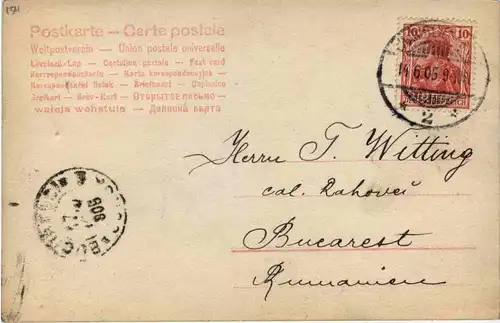 Postkarte – Carte postale
Weltpostverein – Union postale universelle
Levelezö-Lap – Cartolina postale – Post card
Korrespondenzkarte – Karta korespondencyjna
Korespondenční lístek – Briefkaart – Dopisnice
Brefkort – Brev-Kort – Открытое письмо
– Дописна карта
10 10
14.6.05
2
Herrn T. Witting
cal. Rahovei
Bucarest
Rumänien
905